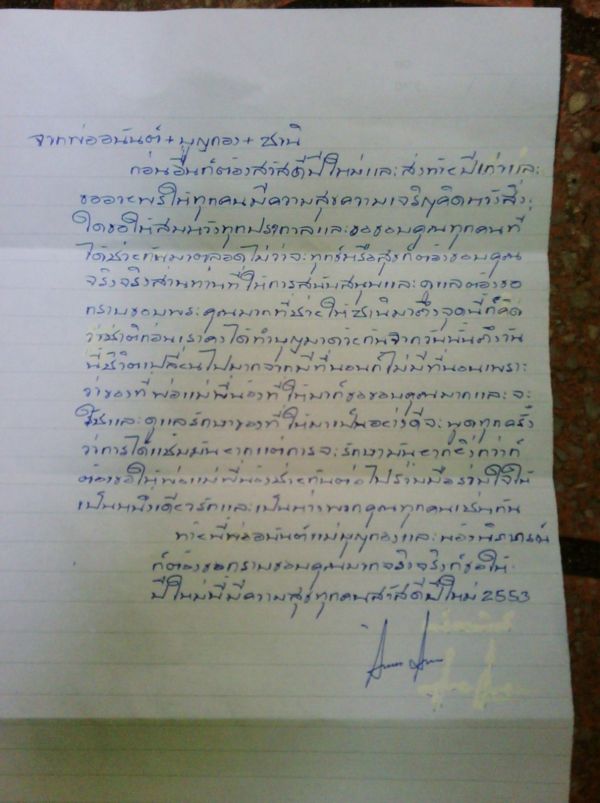 จากพ่ออนันต์ + บุญกอง + ชานิ
ก่อนอื่นก็ต้องสวัสดีปีใหม่และส่งท้ายปีเก่าและ
ขออวยพรให้ทุกคนมีความสุขความเจริญคิดหวังสิ่ง
ใดขอให้สมหวังทุกประการและขอขอบคุณทุกคนที่
ได้ช่วยกันมาตลอดไม่ว่าจะทุกข์หรือสุขก็ต้องขอบคุณ
จริงจริงส่วนท่านที่ให้การสนับสนุนและดูแลต้องขอ
กราบขอบพระคุณมากที่ช่วยให้ชานิมาถึงจุดนี้ก็คิด
ว่าชาติก่อนเราคงได้ทำบุญมาด้วยกันจากวันนั้นถึงวัน
นี้ชีวิตเปลี่ยนไปมากจากมีที่นอนก็ไม่มีที่นอนเพราะ
ว่าของที่พ่อแม่พี่น้องที่ให้มาก็ขอขอบคุณมากและจะ
ใช้และดูแลรักษาของที่ให้มาเป็นอย่างดีจะพูดทุกครั้ง
ว่าการได้แชมป์มันยากแต่การจะรักษามันยากยิ่งกว่าก็
ต้องขอให้พ่อแม่พี่น้องช่วยกันต่อไปร่วมมือร่วมใจให้
เป็นหนึ่งเดียวรักและเป็นห่วงพวกคุณทุกคนเช่นกัน
ท้ายนี้พ่ออนันต์แม่บุญกองและน้อง
ก็ต้องขอกราบขอบคุณมากจริงจริงก็ขอให้
ปีใหม่นี้มีความสุขทุกคนสวัสดีปีใหม่ 2553